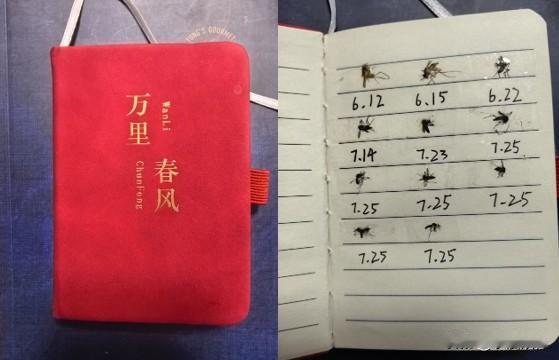 UNG'S GOURMET
万里
WanLi
春风
ChunFeng
6.12 6.15 6.22
7.14 7.23 7.25
7.25 7.25 7-25
7.25 7.25